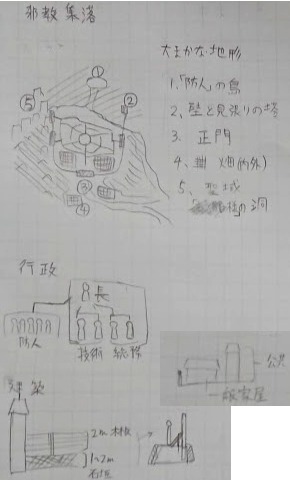 邪教集落
大まかな地形
①
②
③
④
⑤
1、「防人」の島
2、壁と見張りの塔
3、正門
4、畑(内外)
5、聖域
の洞
行政
長
防人
技術 総裁
建築
2m 木板
1~2m
石垣
公共
一般家屋